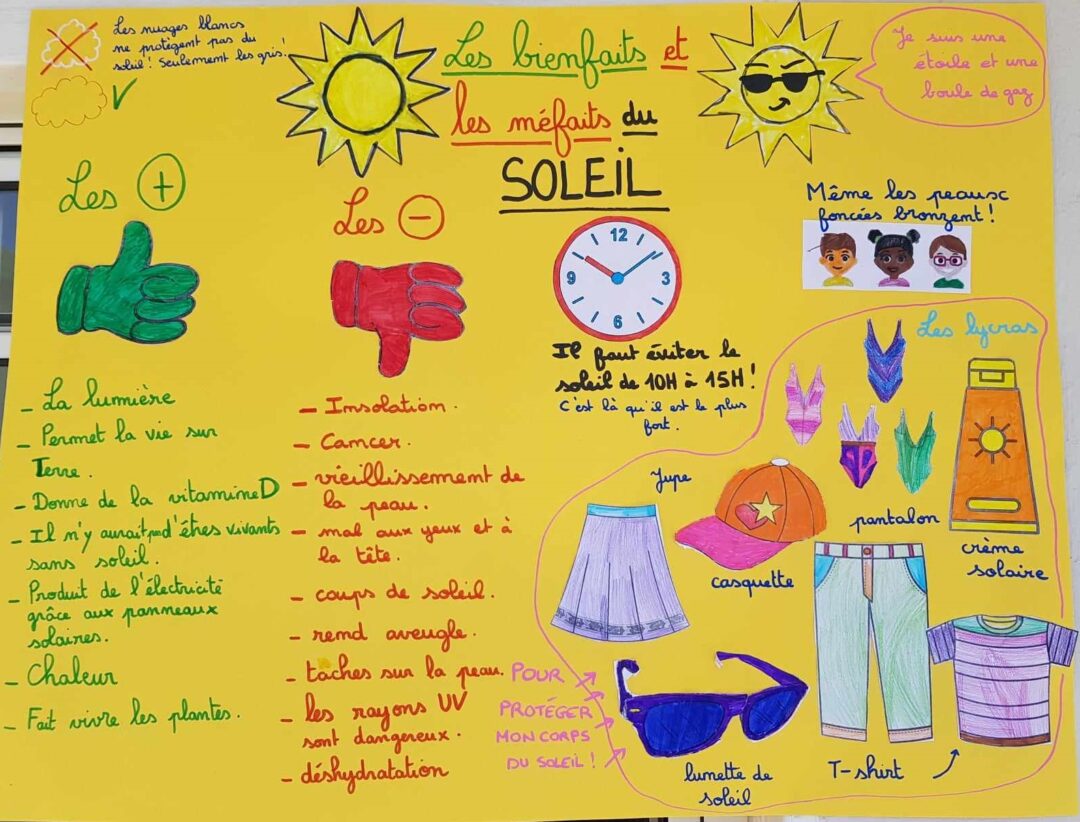 Les nuages blancs
ne protègent pas du
soleil ! Seulement les gris !
Les bienfaits et
les méfaits du
SOLEIL
Je suis une
étoile et une
boule de gaz
Les +
- La lumière
- Permet la vie sur
Terre.
- Donne de la vitamine D
- Il n'y aurait pas d'êtres vivants
sans soleil.
- Produit de l'électricité
grâce aux panneaux
solaires.
- Chaleur
- Fait vivre les plantes.
Les -
- Insolation.
- Cancer.
- vieillissement de
la peau.
- mal aux yeux et à
la tête.
- coups de soleil.
- rend aveugle.
- taches sur la peau.
- les rayons UV
sont dangereux.
- déshydratation
12
9
3
6
Il faut éviter le
soleil de 10H à 15H !
C'est là qu'il est le plus
fort.
Même les peaux
foncées bronzent !
Les lycras
Jupe
casquette
pantalon
crème
solaire
POUR
PROTÉGER
MON CORPS
DU SOLEIL !
lunette de
soleil
T-shirt